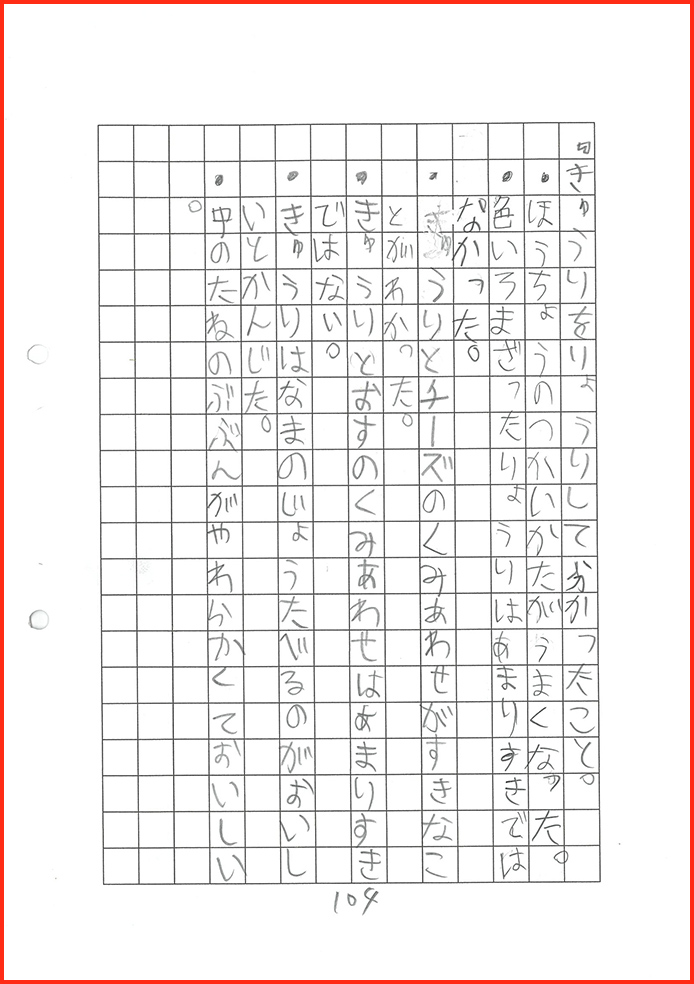 きゅうりをりょうりして分かったこと。
・ほうちょうのつかいかたがうまくなった。
・色いろまざったりょうりはあまりすきでは
なかった。
・きゅうりとチーズのくみあわせがすきなこ
とがわかった。
・きゅうりとおすのくみあわせはあまりすき
ではない。
・きゅうりはなまのじょうたべるのがおいし
いとかんじた。
・中のたねのぶぶんがやわらかくておいしい
。
104